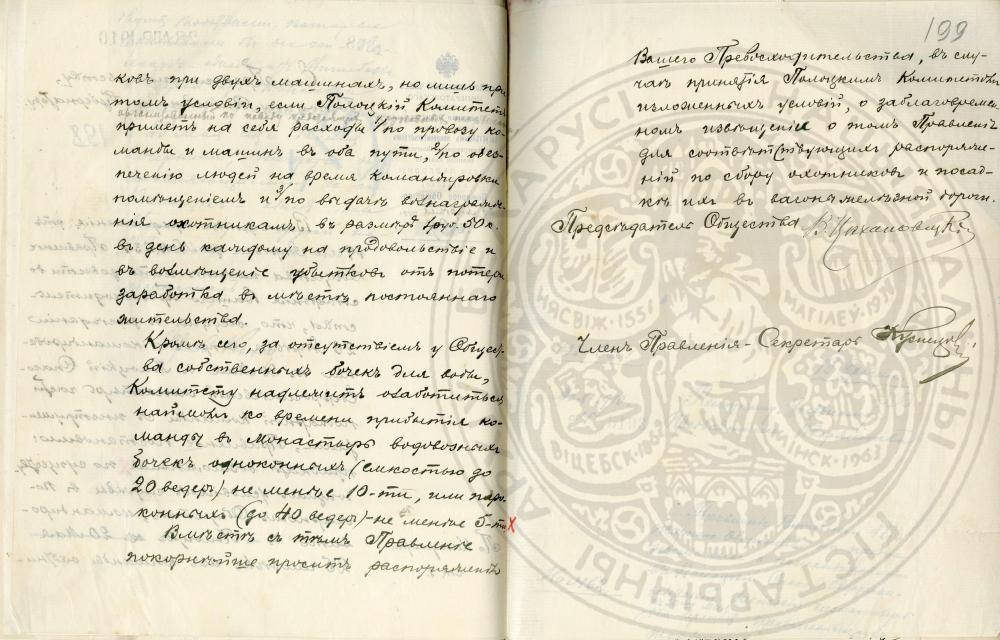 ковъ при двухъ машинахъ, но лишь при
томъ условіи, если Полоцкій Комитетъ
приметъ на себя расходы 1/ по провозу ко-
манды и машинъ въ оба пути, 2/ по обез-
печенію людей на время командировки
помѣщеніемъ и 3/ по выдачѣ вознагражде-
нія охотникамъ въ размѣрѣ 1 руб. 50 к.
въ день каждому на продовольствіе и
въ возмѣщеніе убытковъ отъ потери
заработка въ мѣстѣ постояннаго
жительства.
Кромѣ сего, за отсутствіемъ у Общест-
ва собственныхъ бочекъ для воды,
Комитету надлежитъ озаботиться
наймомъ ко времени прибытія ко-
манды въ Монастырь водовозныхъ
бочекъ одноконныхъ (емкостью до
20 ведеръ) не менѣе 10-ти, или паро-
конныхъ (до 40 ведеръ) - не менѣе 5-ти
Вмѣстѣ съ тѣмъ Правленіе
покорнѣйше проситъ распоряженія
199
Вашего Превосходительства, въ слу-
чаѣ принятія Полоцкимъ Комитетомъ
изложенныхъ условій, о заблаговремен-
номъ извѣщеніи о томъ Правленія
для соотвѣтствующихъ распоряже-
ній по сбору охотниковъ и посад-
кѣ ихъ въ вагоны желѣзной дороги.
Предсѣдатель Общества
Членъ Правленія - Секретарь
НЯСВІЖ-155
МАГІЛЕЎ-19
ВІЦЕБСК-18